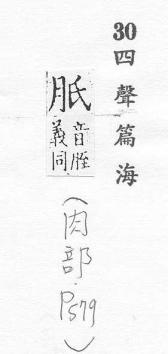 30 四聲篇海
音胵
義同
(肉部.P579)